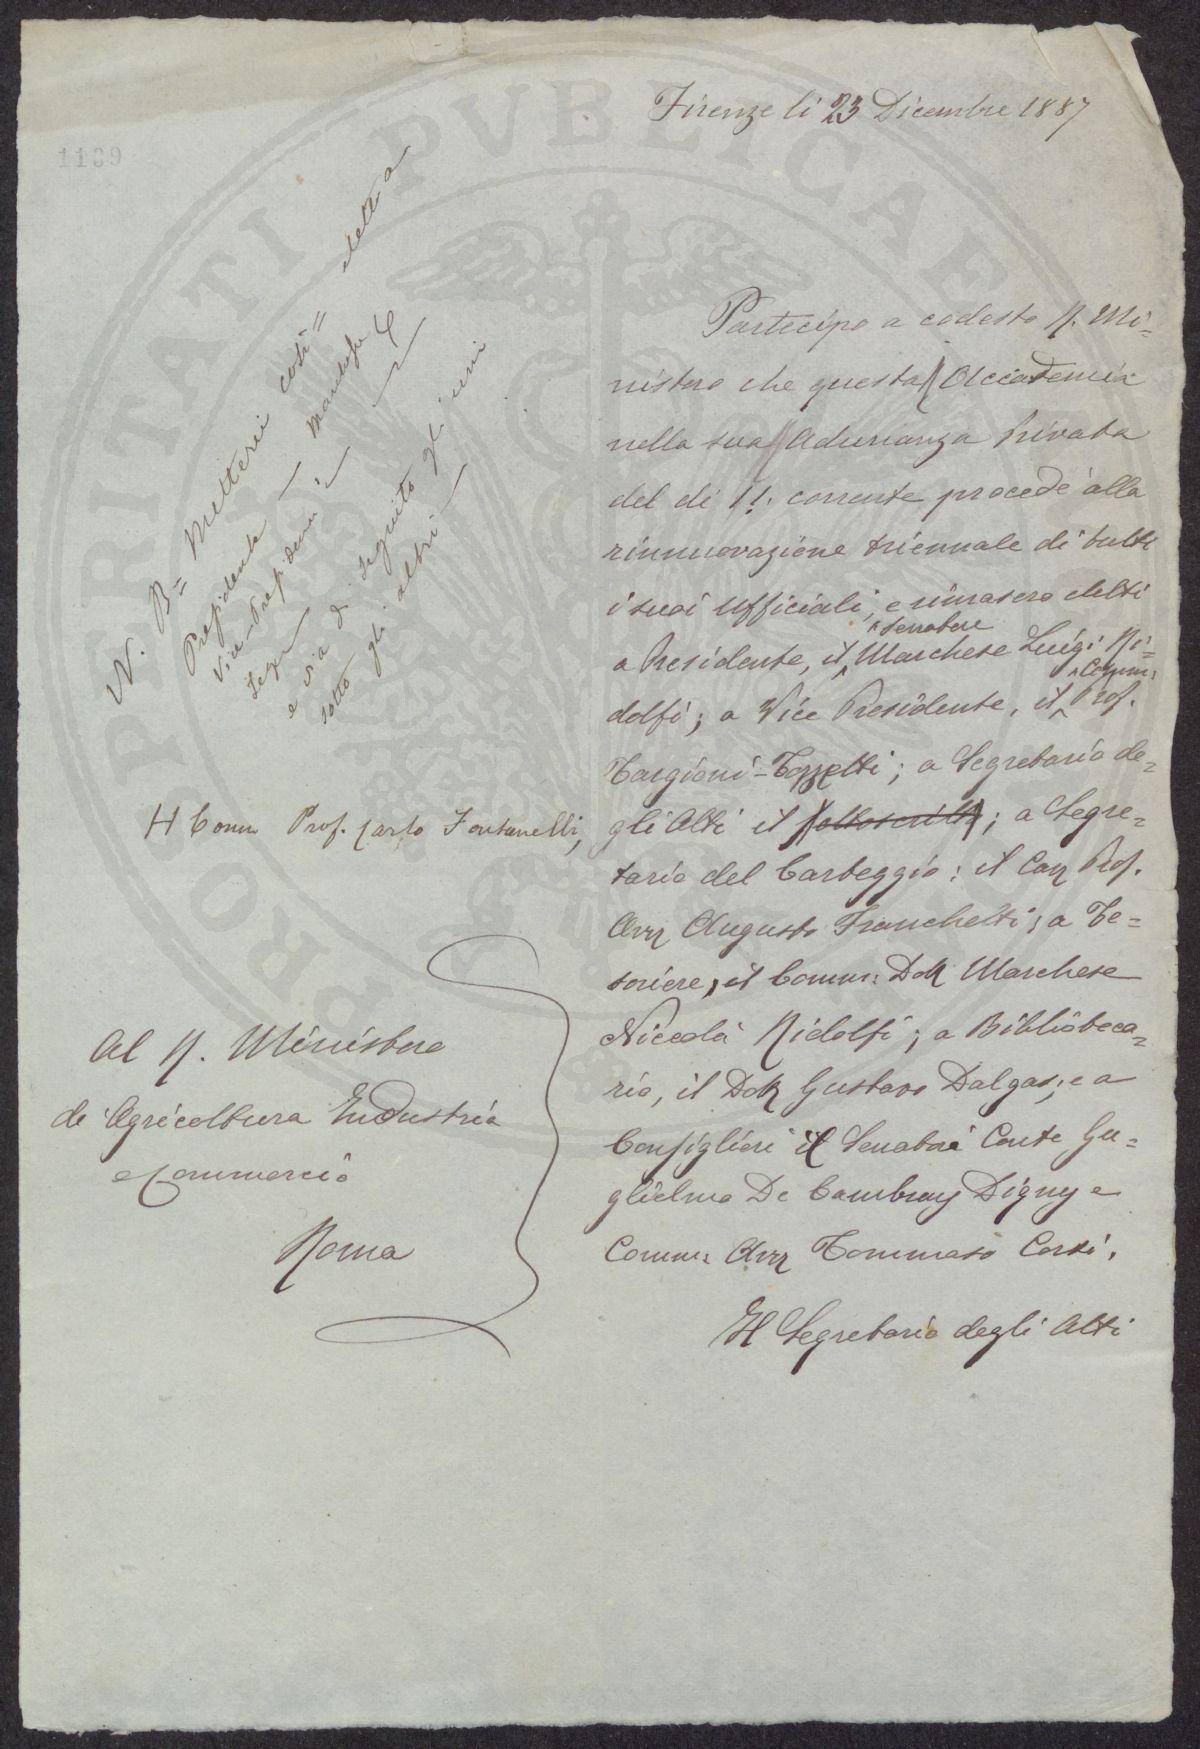 Firenze li 23 Dicembre 1887
1139
N. B= Mettersi così=
Presidente — eletto a
Vice-Presidenti — Marchese
Segr
e via di seguito gli uni
sotto gli altri —
Partecipo a codesto R. Mi=
nistero che questa Accademia
nella sua Adunanza Privata
del dì 11. corrente procedè alla
rinnuovazione triennale di tutti
i suoi Ufficiali, e rimasero eletti
Senatore
a Presidente, il Marchese Luigi Ri=
Comm:
dolfi; a Vice Presidente, il Prof.
Targioni-Tozzetti; a Segretario de=
Il Comm Prof. Carlo Fontanelli,
gli Atti il sottoscritto; a Segre=
tario del Carteggio: il Cav Prof.
Avv Augusto Franchetti; a Te=
soriere, il Comm: Dott Marchese
Niccolò Ridolfi; a Biblioteca=
rio, il Dott Gustavo Dalgas; e a
Consiglieri il Senatore Conte Gu=
glielmo De Cambray Digny e
Comm: Avv Tommaso Corsi.
Il Segretario degli Atti
Al R. Ministero
di Agricoltura Industria
e Commercio
Roma
PROSPERITATI PVBLICAE